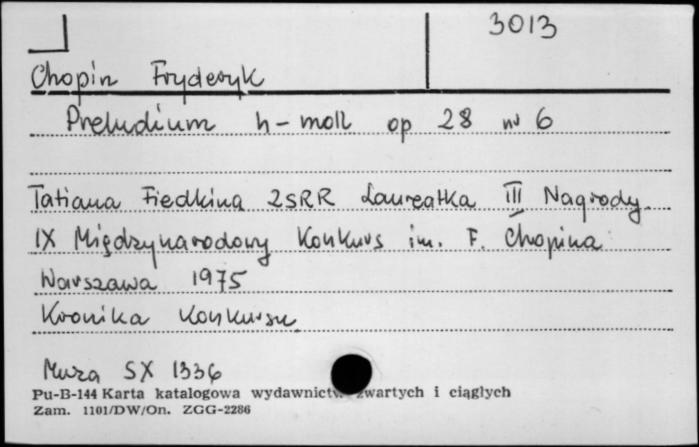 3013
Chopin Fryderyk
Preludium h-moll op 28 nr 6
Tatiana Fiedkina ZSRR Laureatka III Nagrody
IX Międzynarodowy Konkurs im. F. Chopina
Warszawa 1975
Kronika Konkursu
Muza SX 1336
Pu-B-144 Karta katalogowa wydawnictw zwartych i ciągłych
Zam. 1101/DW/On. ZGG-2286